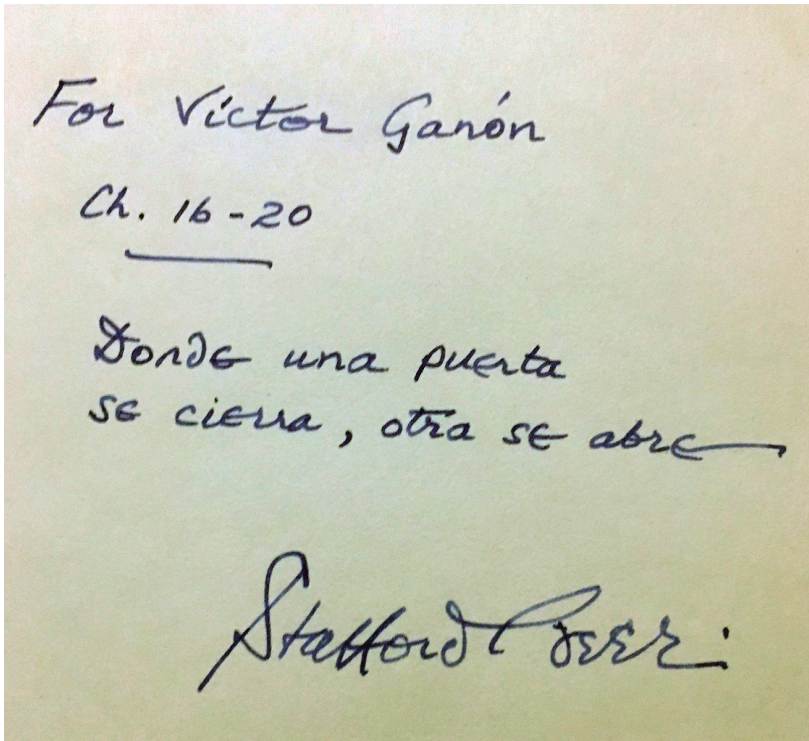 For Víctor Ganón
Ch. 16-20
Donde una puerta
se cierra, otra se abre
Stafford Beer.